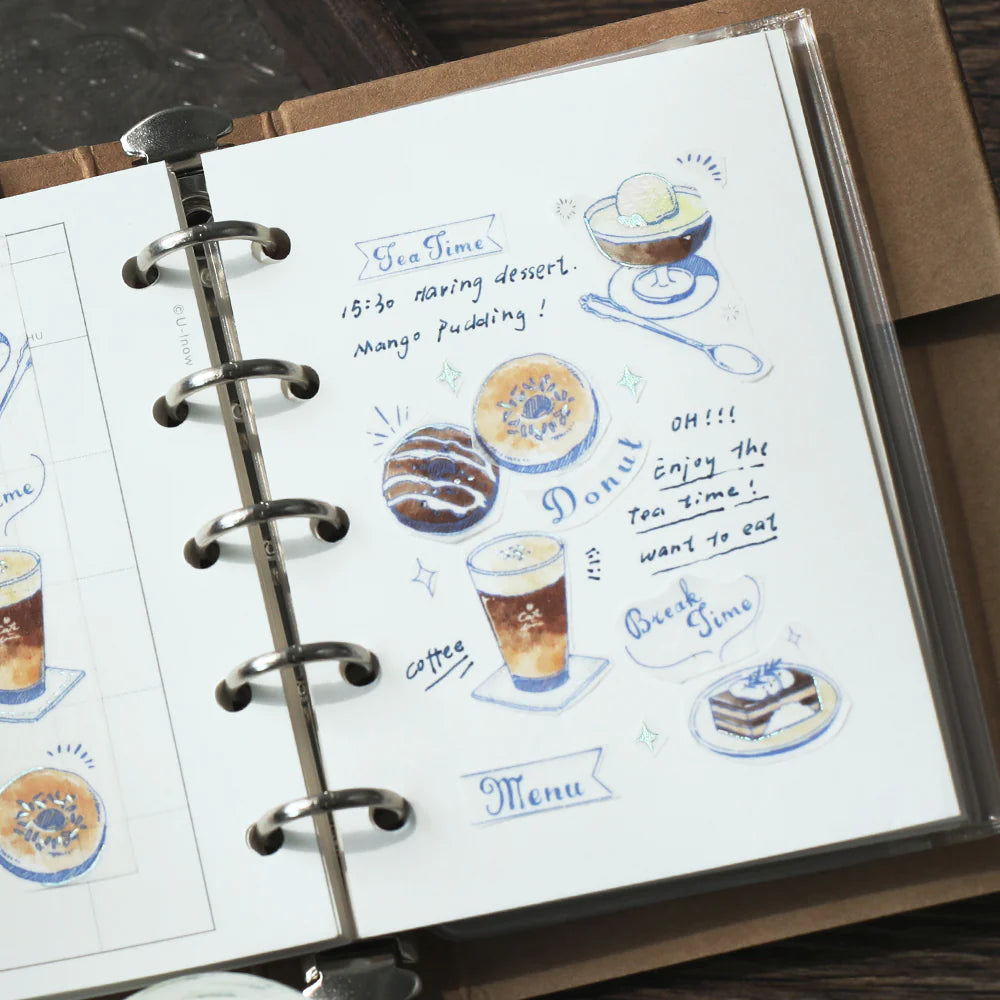 HU
© U-Know
me
Tea Time
15:30 Having dessert.
Mango Pudding!
Donut
OH!!!
Enjoy the
Tea time!
want to eat
Break
Time
coffee
Menu